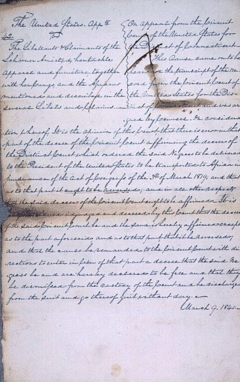 The United States, App.ts
vs
The Libelants & Claimants of the
Schooner Amistad, her tackle
apparel and furniture, together
with her cargo and the Africans
mentioned and described in the
several Libels and
On appeal from the Circuit
Court of the United States for
the District of Connecticut.
This cause came on to be
heard on the transcript of the
the Circuit Court
of the United States for the
of
by Counsel. On consideration
whereof, It is the opinion of this Court that there is error in that
part of the decree of the Circuit Court affirming the decree of
the District Court which ordered the said negroes to be delivered
to the President of the United States to be transported to Africa in
pursuance of the act of Congress of the 3rd of March 1819; and that
as to that part it ought to be reversed; and in all other respects
that the said decree of the Circuit Court ought to be affirmed. It is
decreed by this Court that the decree of
the said Circuit Court be and the same is hereby affirmed except
as to the part aforesaid and as to that part that it be reversed;
and that the cause be remanded to the Circuit Court with directions
to enter in lieu of that part a decree that the said negroes
be and are hereby declared to be free and that they
be dismissed from the custody of the Court and be discharged
from the suit and go thereof quit without day.
March 9, 1841